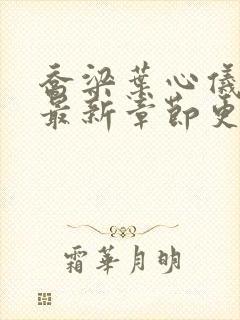 乔梁葉心儀
最新章節更
霜華月明